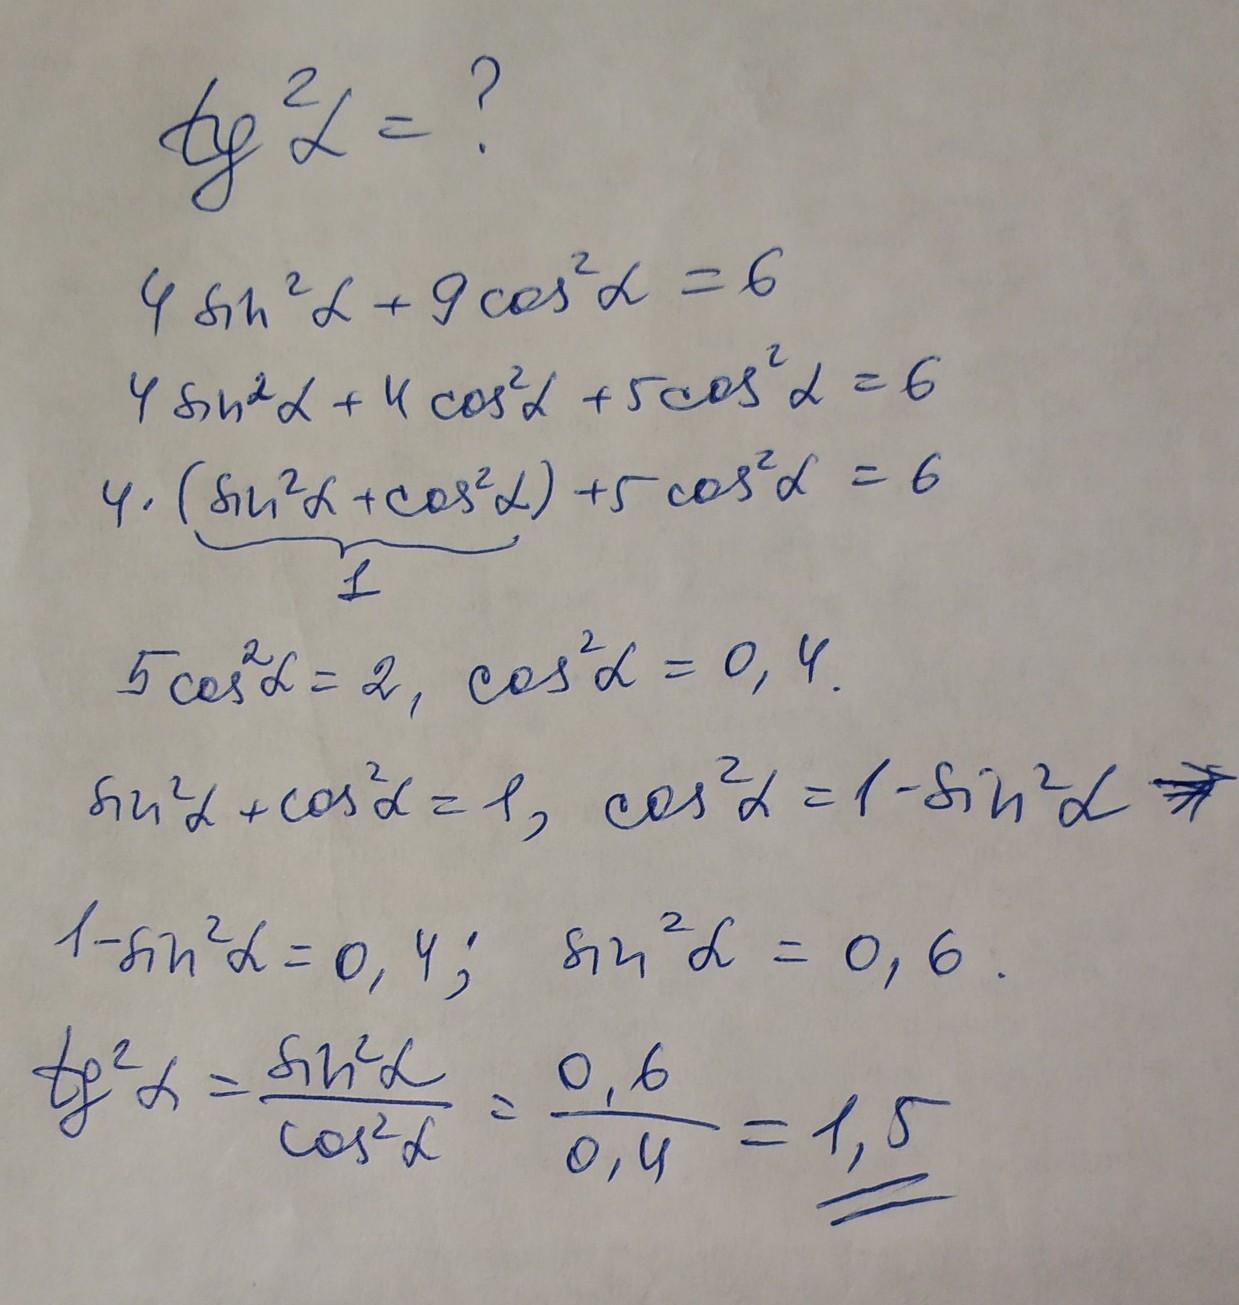 tg²α = ?
4 sin²α + 9 cos²α = 6
4 sin²α + 4 cos²α + 5 cos²α = 6
4 · (sin²α + cos²α) + 5 cos²α = 6
1
5 cos²α = 2, cos²α = 0,4.
sin²α + cos²α = 1, cos²α = 1 - sin²α ⇒
1 - sin²α = 0,4; sin²α = 0,6.
tg²α = sin²α / cos²α = 0,6 / 0,4 = 1,5